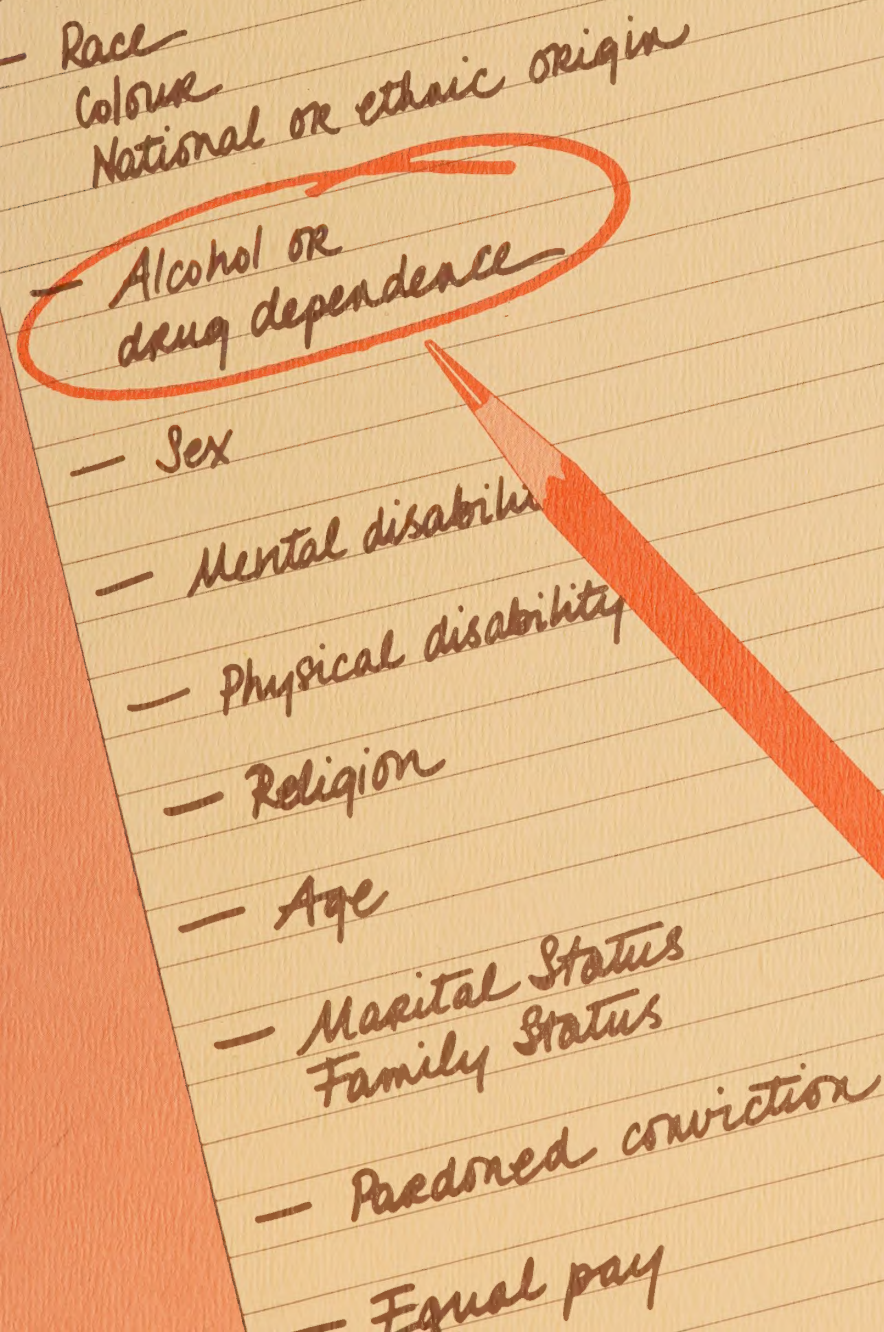 — Race
Colour
National or ethnic origin
— Alcohol or
drug dependence
— Sex
— Mental disabili
— Physical disability
— Religion
— Age
— Marital Status
Family Status
— Pardoned conviction
— Equal pay